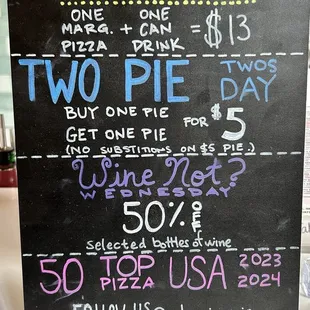 ONE ONE
MARG. + CAN = $13
PIZZA DRINK
TWO PIE TWOS DAY
BUY ONE PIE
GET ONE PIE FOR $5
(NO SUBSTITIONS ON $5 PIE.)
Wine Not?
WEDNESDAY
50% OFF
selected bottles of wine
50 TOP PIZZA USA 2023 2024
FOLLOW US